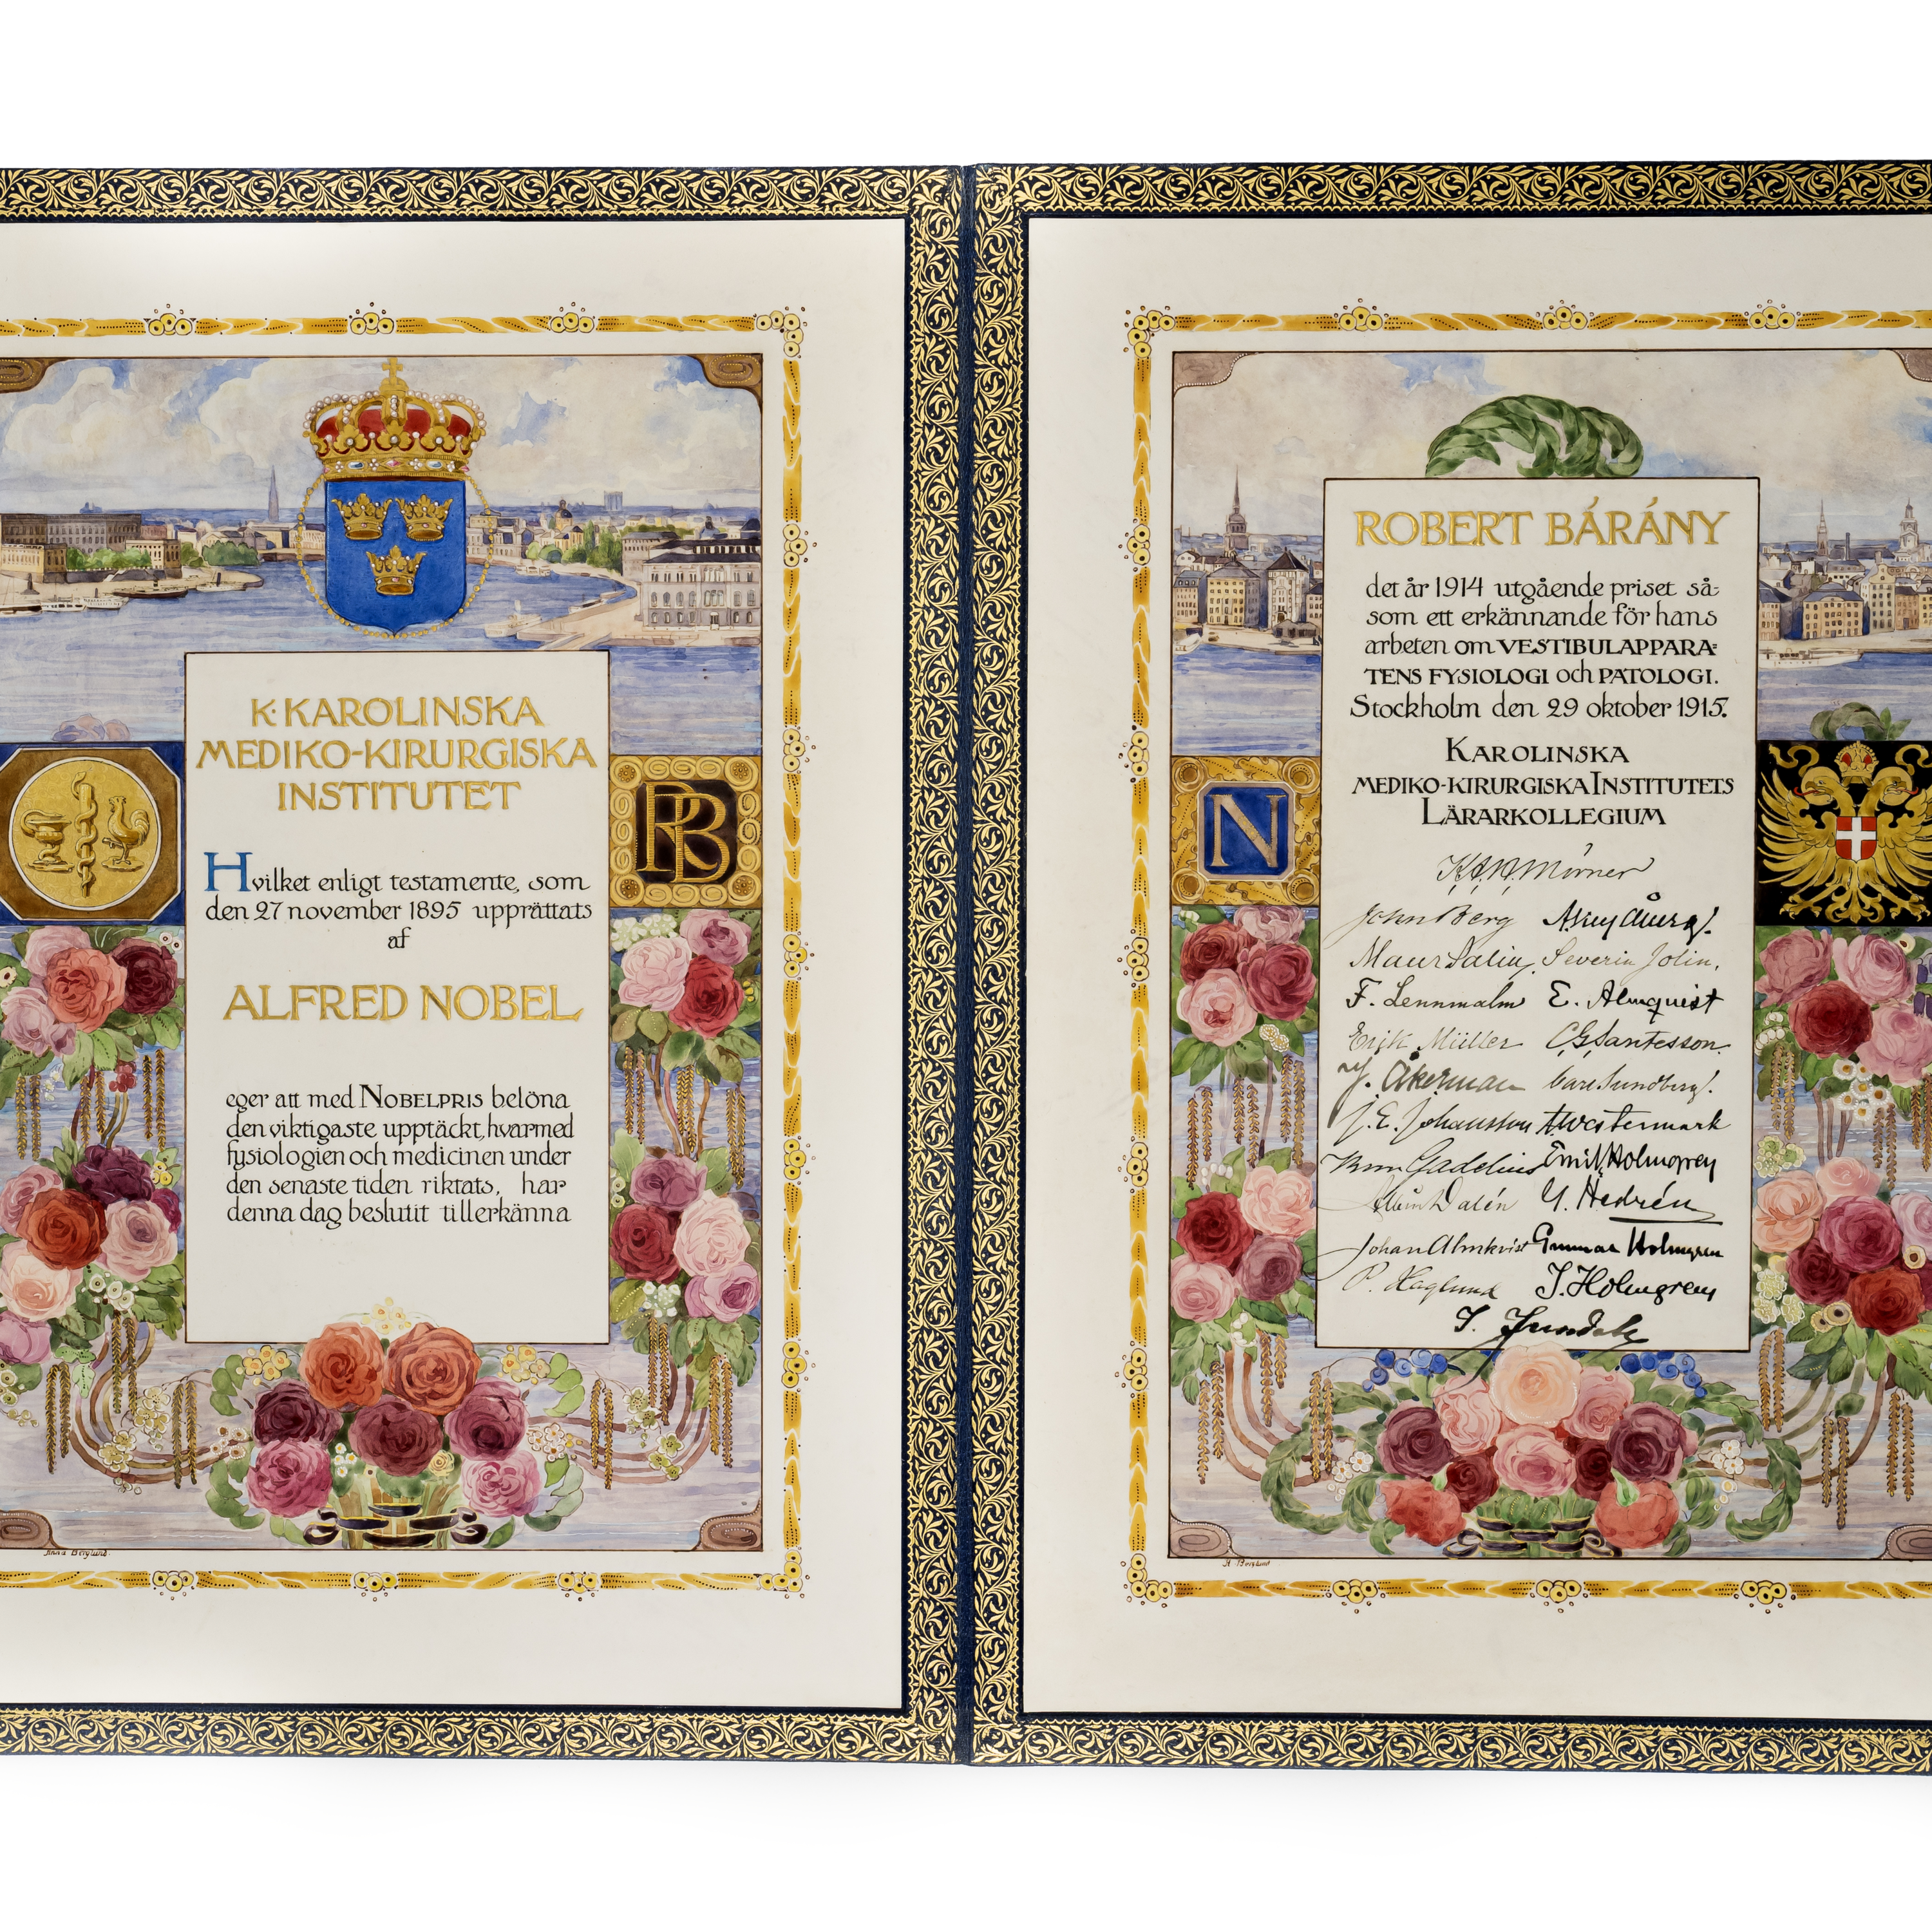 K. KAROLINSKA
MEDIKO-KIRURGISKA
INSTITUTET
Hvilket enligt testamente, som
den 27 november 1895 upprättats
af
ALFRED NOBEL
eger att med NOBELPRIS belöna
den viktigaste upptäckt, hvarmed
fysiologien och medicinen under
den senaste tiden riktats, har
denna dag beslutit tillerkänna
RB
Anna Berglund.
ROBERT BÁRÁNY
det år 1914 utgående priset så-
som ett erkännande för hans
arbeten om VESTIBULAPPARA-
TENS FYSIOLOGI och PATOLOGI.
Stockholm den 29 oktober 1915.
KAROLINSKA
MEDIKO-KIRURGISKA INSTITUTETS
LÄRARKOLLEGIUM
N
K.A.H. Mörner
John Berg
Severin Jolin.
F. Lennmalm E. Almquist
Erik Müller C.G. Santesson.
J. Åkerman Carl Sundberg.
J. E. Johansson A. Westermark
Gadelius Emil Holmgren
Albin Dalén G. Hedrén
Johan Almkvist Gunnar Holmgren
P. Haglund I. Holmgren
I. Jundell
A. Berglund